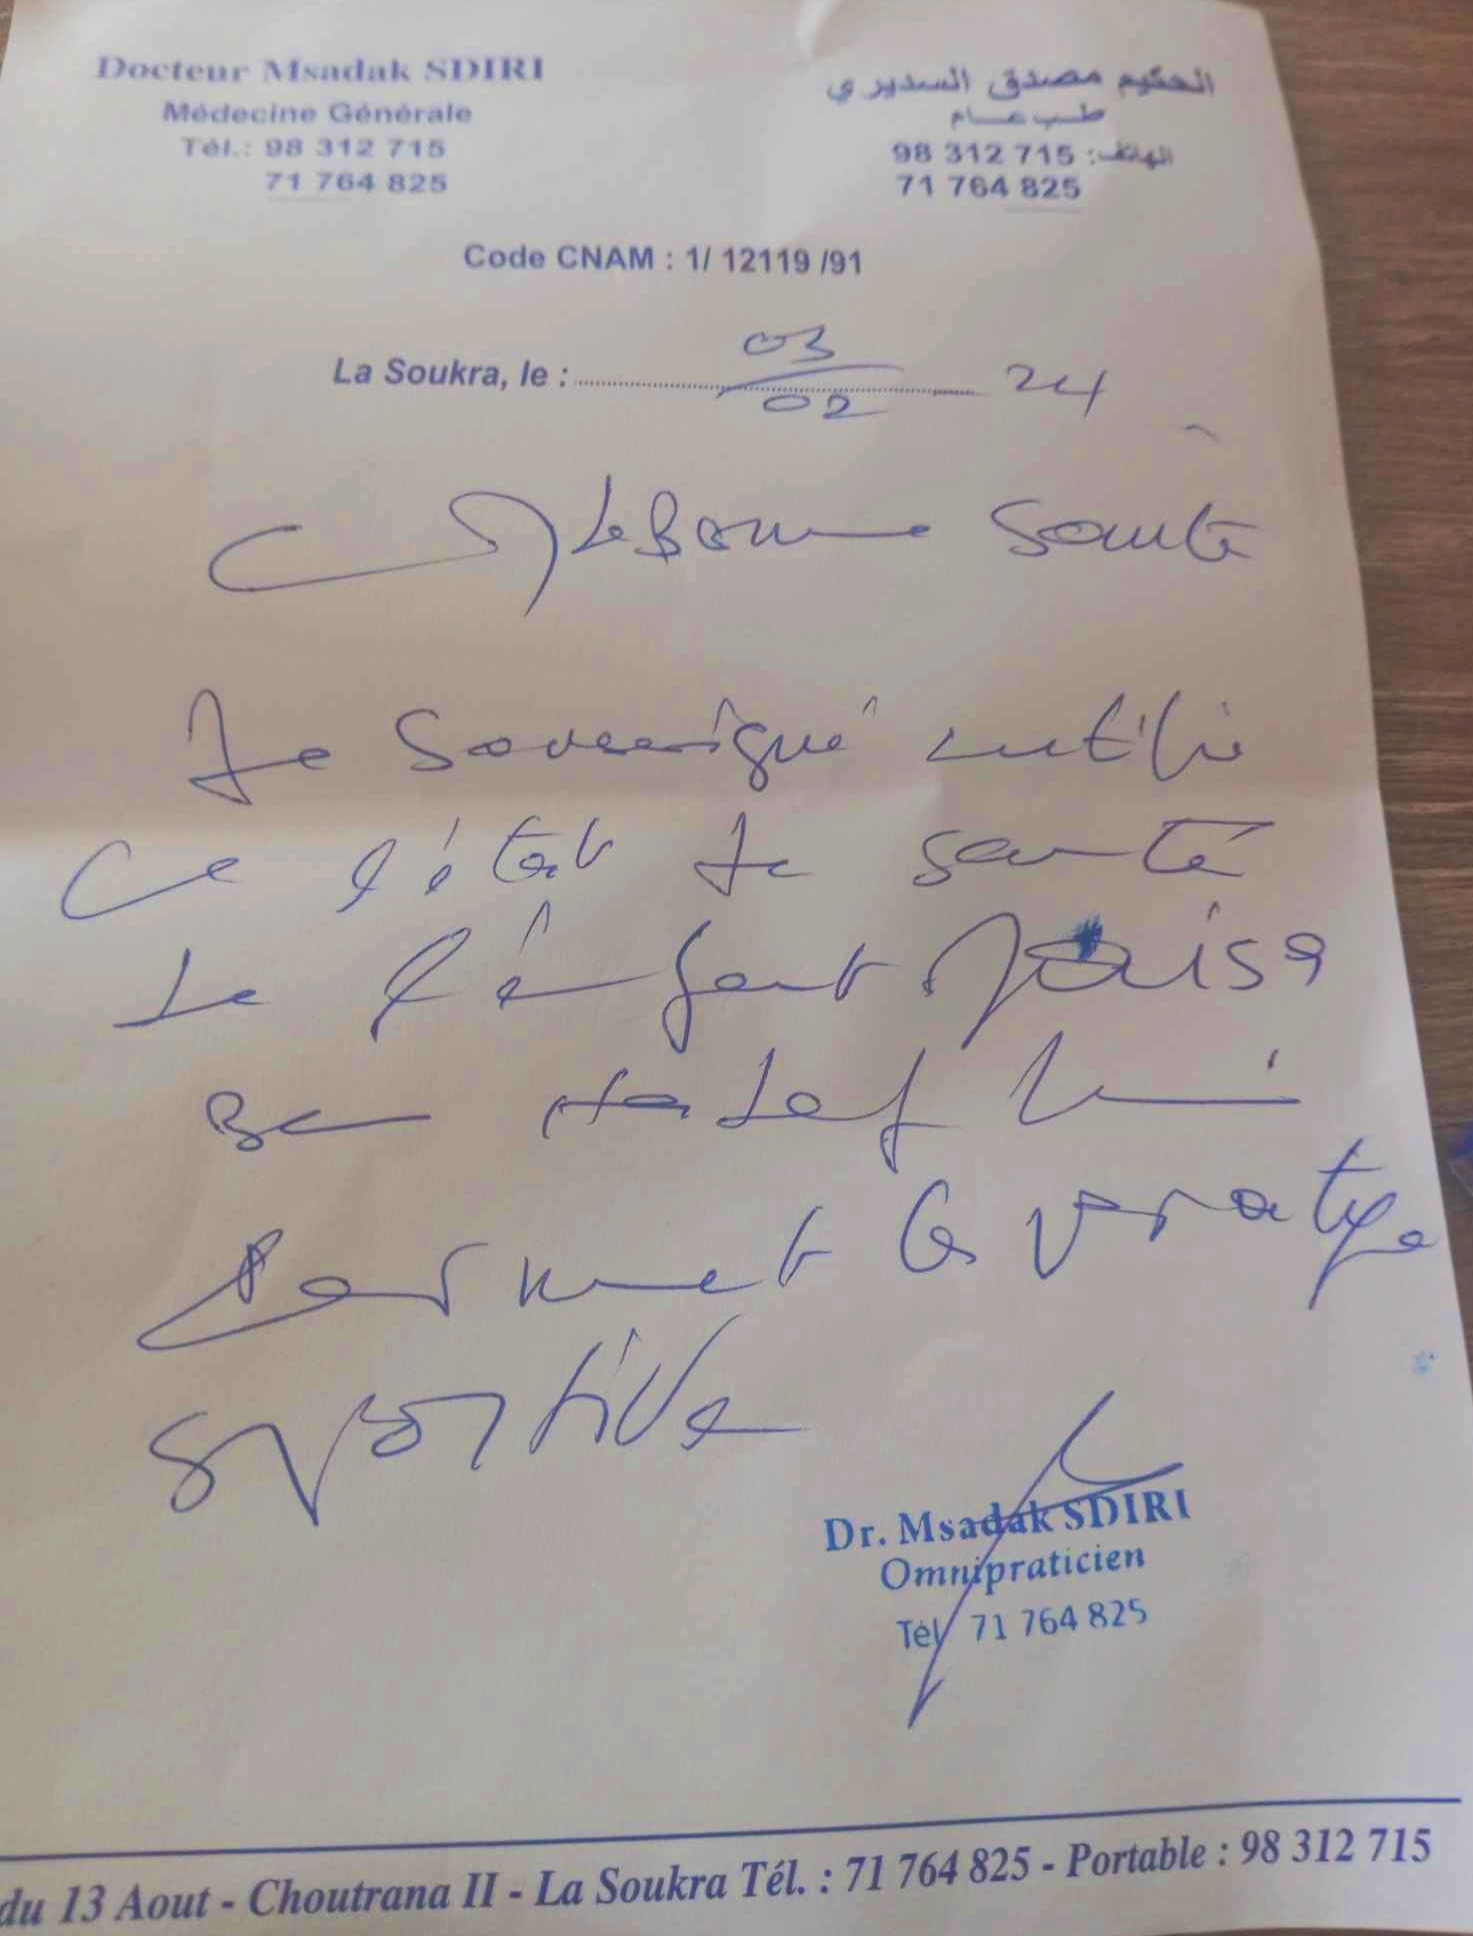 Docteur Msadak SDIRI
Médecine Générale
Tél.: 98 312 715
71 764 825
الحكيم مصدق السديري
طب عام
الهاتف: 98 312 715
71 764 825
Code CNAM : 1/ 12119 /91
La Soukra, le : 03/02 24
de Bonne Santé
Je soussigné certifie
Ce l'état de santé
de l'enfant
Ben lui
Permet la pratique
sportive
Dr. Msadak SDIRI
Omnipraticien
Tél 71 764 825
du 13 Aout - Choutrana II - La Soukra Tél. : 71 764 825 - Portable : 98 312 715